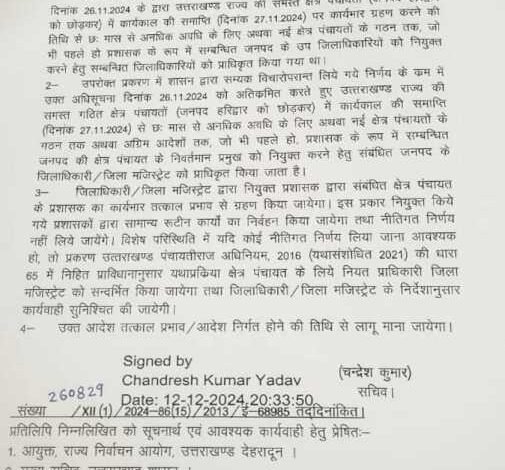 दिनांक 26.11.2024 के द्वारा उत्तराखण्ड राज्य की समस्त क्षेत्र
को छोड़कर) में कार्यकाल की समाप्ति (दिनांक 27.11.2024) पर कार्यभार ग्रहण करने की
तिथि से छः मास से अनधिक अवधि के लिए अथवा नई क्षेत्र पंचायतों के गठन तक, जो
भी पहले हो प्रशासक के रूप में सम्बन्धित जनपद के उप जिलाधिकारियों को नियुक्त
करने हेतु सम्बन्धित जिलाधिकारियों को प्राधिकृत किया गया था।
2– उपरोक्त प्रकरण में शासन द्वारा सम्यक विचारोपरान्त लिये गये निर्णय के क्रम में
उक्त अधिसूचना दिनांक 26.11.2024 को अतिक्रमित करते हुए उत्तराखण्ड राज्य की
समस्त गठित क्षेत्र पंचायतों (जनपद हरिद्वार को छोड़कर) में कार्यकाल की समाप्ति
(दिनांक 27.11.2024) से छः मास से अनधिक अवधि के लिए अथवा नई क्षेत्र पंचायतों के
गठन तक अथवा अग्रिम आदेशों तक, जो भी पहले हो, प्रशासक के रूप में सम्बन्धित
जनपद की क्षेत्र पंचायत के निवर्तमान प्रमुख को नियुक्त करने हेतु संबंधित जनपद के
जिलाधिकारी/जिला मजिस्ट्रेट को प्राधिकृत किया जाता है।
3– जिलाधिकारी/जिला मजिस्ट्रेट द्वारा नियुक्त प्रशासक द्वारा संबंधित क्षेत्र पंचायत
के प्रशासक का कार्यभार तत्काल प्रभाव से ग्रहण किया जायेगा। इस प्रकार नियुक्त किये
गये प्रशासकों द्वारा सामान्य रूटीन कार्यों का निर्वहन किया जायेगा तथा नीतिगत निर्णय
नहीं लिये जायेंगे। विशेष परिस्थिति में यदि कोई नीतिगत निर्णय लिया जाना आवश्यक
हो, तो प्रकरण उत्तराखण्ड पंचायतीराज अधिनियम, 2016 (यथासंशोधित 2021) की धारा
65 में निहित प्राविधानानुसार यथाप्रक्रिया क्षेत्र पंचायत के लिये नियत प्राधिकारी जिला
मजिस्ट्रेट को सन्दर्भित किया जायेगा तथा जिलाधिकारी/जिला मजिस्ट्रेट के निर्देशानुसार
कार्यवाही सुनिश्चित की जायेगी।
4– उक्त आदेश तत्काल प्रभाव/आदेश निर्गत होने की तिथि से लागू माना जायेगा।
Signed by
Chandresh Kumar Yadav
(चन्द्रेश कुमार)
Date: 12-12-2024 20:33:50
सचिव।
260829
संख्या /XII(1)/2024–86(15)/2013/ई–68985 तद्दिनांकित।
प्रतिलिपि निम्नलिखित को सूचनार्थ एवं आवश्यक कार्यवाही हेतु प्रेषितः–
1. आयुक्त, राज्य निर्वाचन आयोग, उत्तराखण्ड देहरादून ।